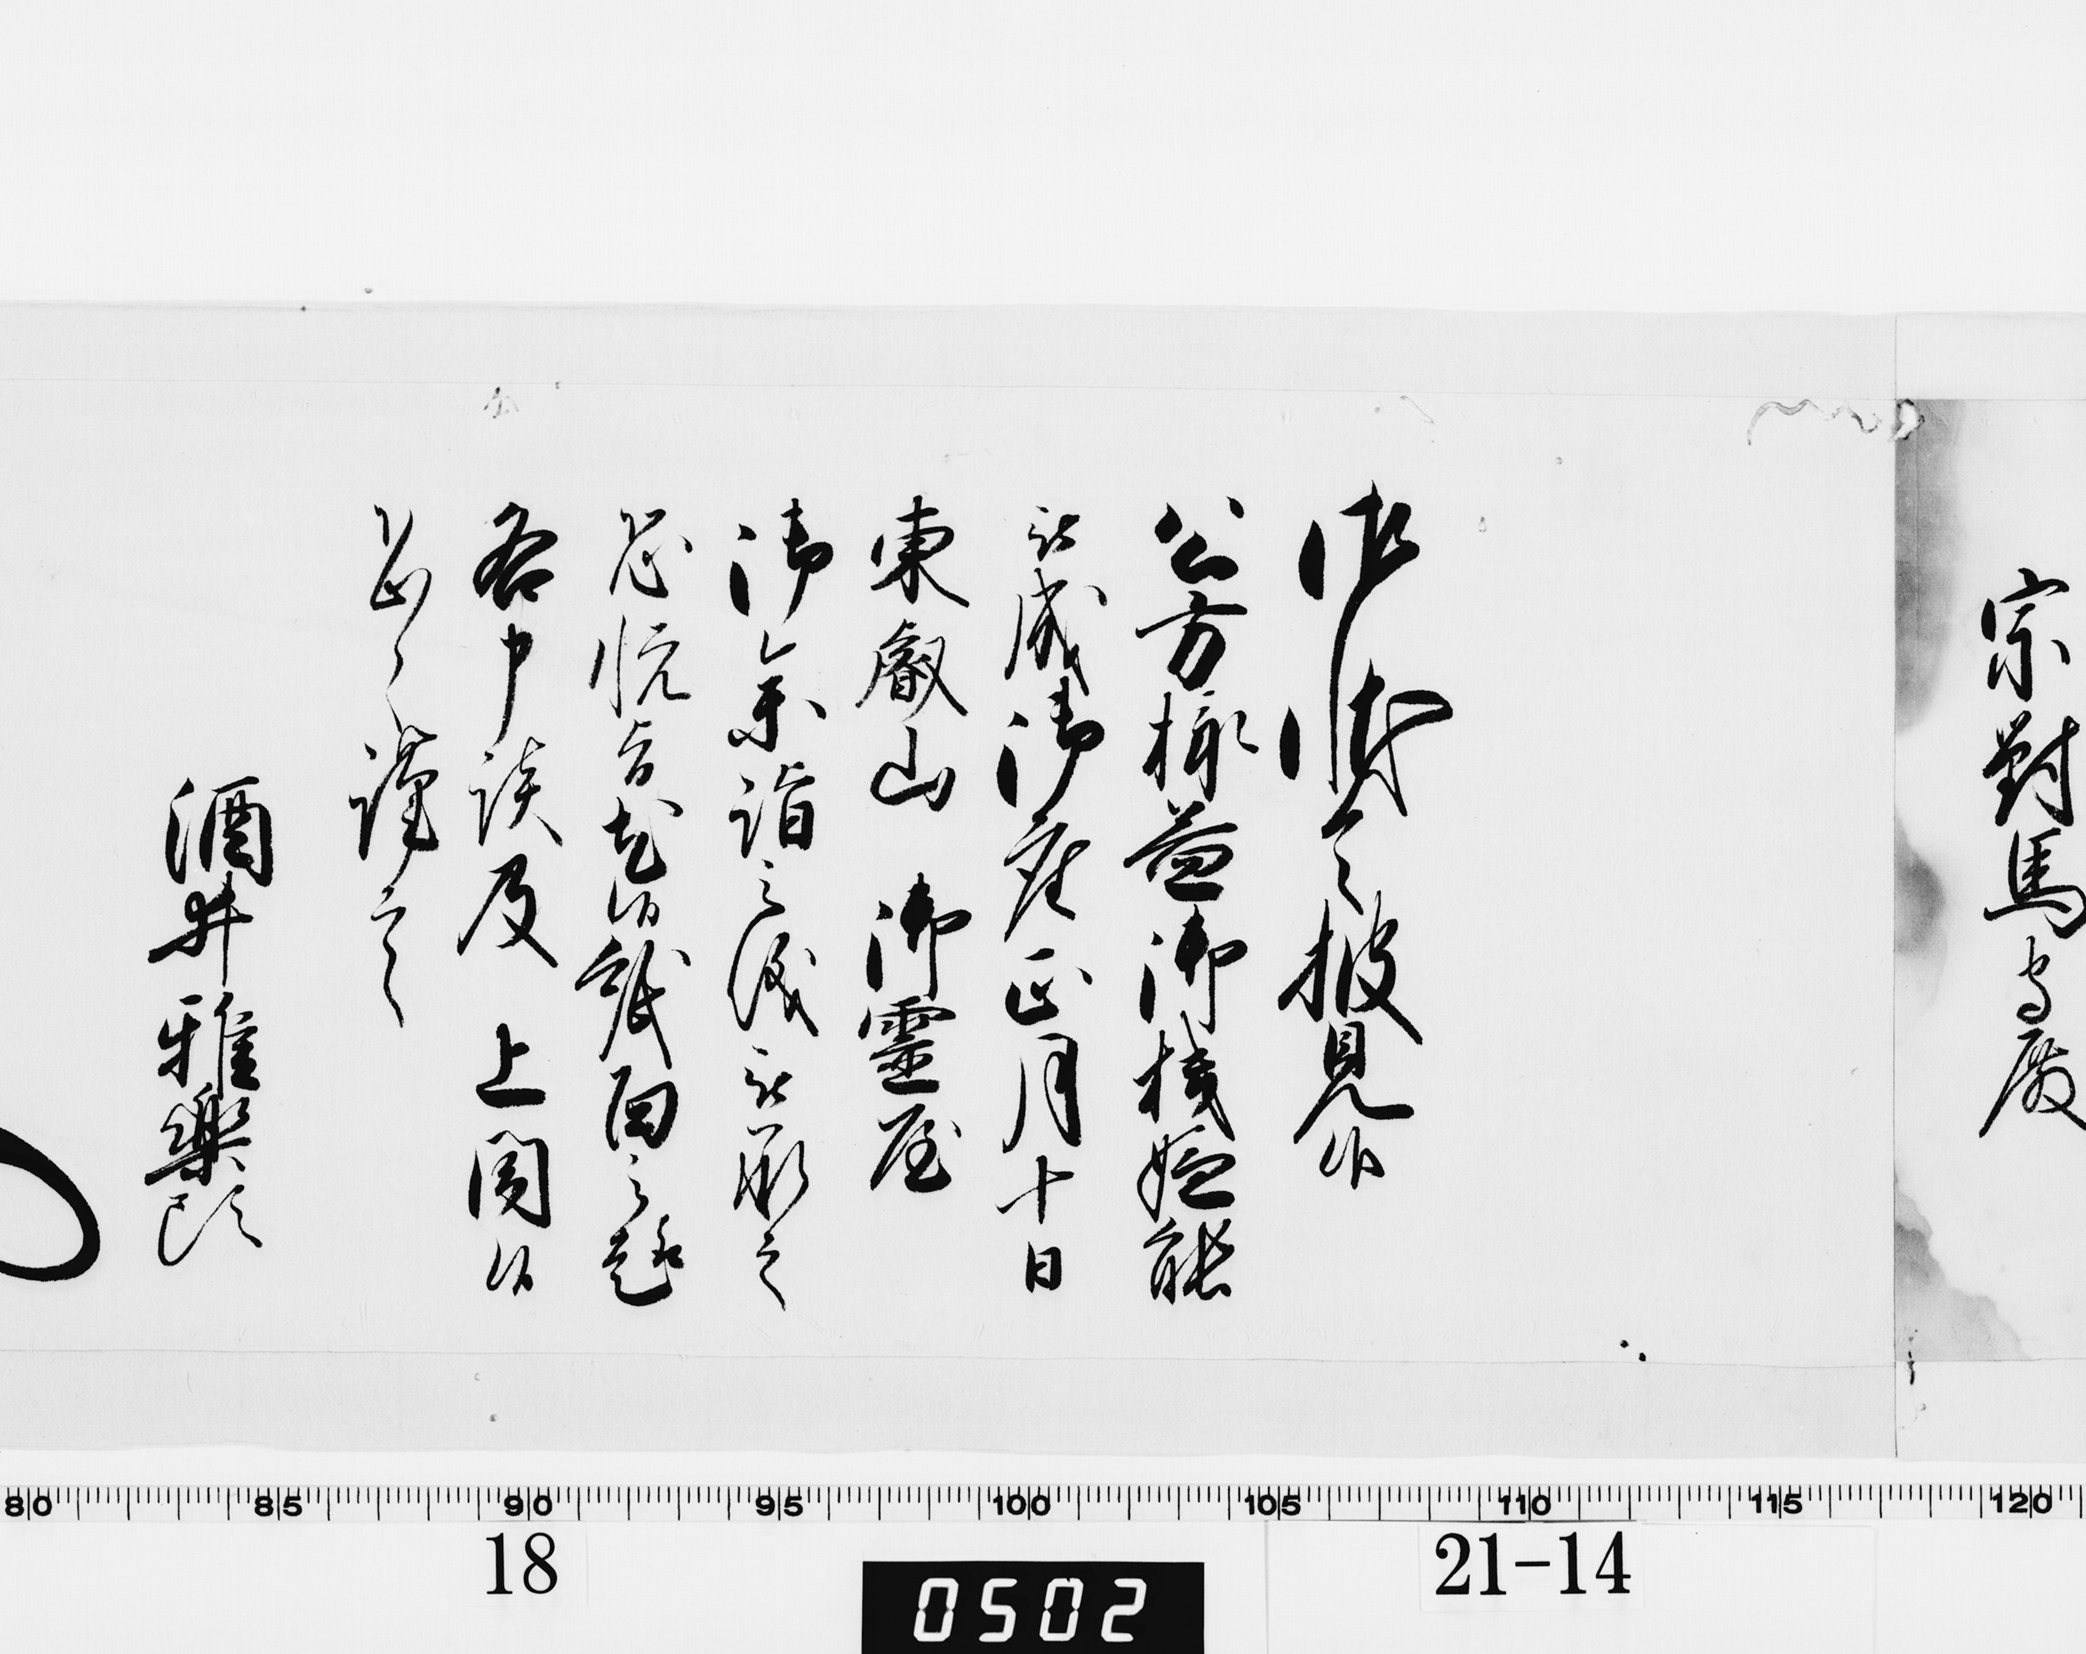 宗對馬守殿
御状令披見候
公方様益御機嫌能
被成御座正月十日
東叡山 御霊屋
御参詣之儀被承之
恐悦旨尤候紙面之趣
各申談及 上聞候
恐々謹言
酒井雅楽頭
80 85 90 95 100 105 110 115 120
18
0502
21-14